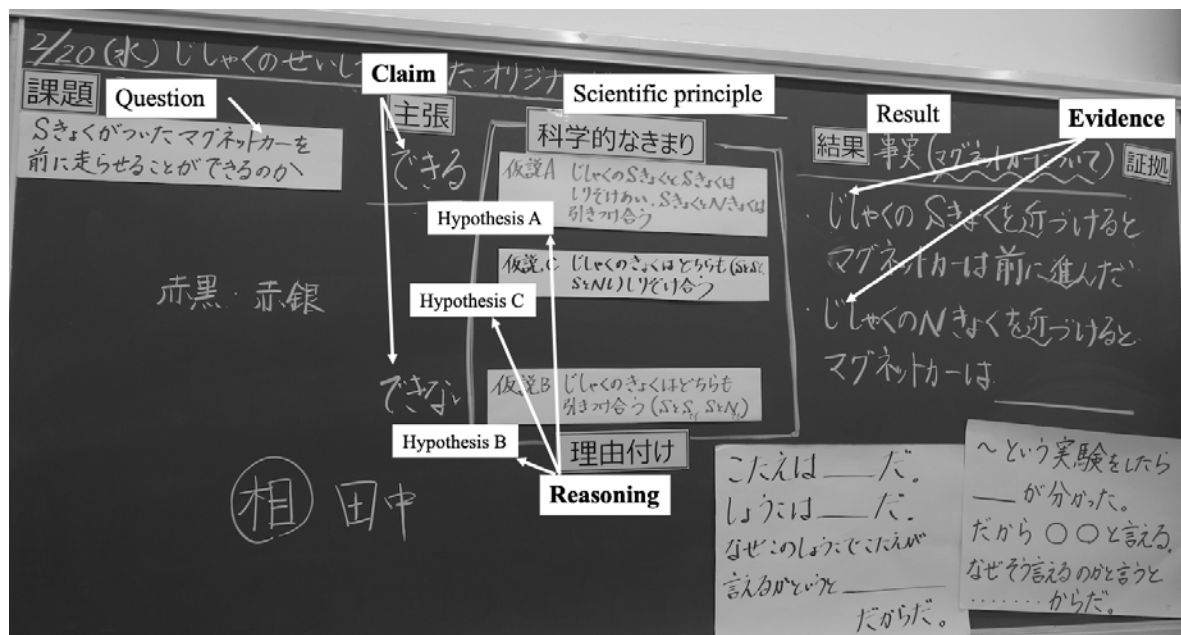 2/20(水)じしゃくのせいし
たオリジナ
課題
Question
Sきょくがついたマグネットカーを
前に走らせることができるのか
赤黒・赤銀
相 田中
Claim
主張
できる
できな
Scientific principle
科学的なきまり
仮説A じしゃくのSきょくとSきょくは
しりぞけあい、SきょくとNきょくは
引きつけ合う
Hypothesis A
仮説C じしゃくのきょくはどちらも(SとS、
SとN)しりぞけ合う
Hypothesis C
仮説B じしゃくのきょくはどちらも
引きつけ合う(SとS、SとN)
Hypothesis B
理由付け
Reasoning
Result
Evidence
結果 事実(マグネットカーについて) 証拠
・じしゃくのSきょくを近づけると
マグネットカーは前に進んだ
・じしゃくのNきょくを近づけると
マグネットカーは
こたえは___だ。
しょうこは___だ。
なぜこのしょうこでこたえが
言えるかというと______
だからだ。
〜という実験をしたら
___が分かった。
だから〇〇と言える。
なぜそう言えるのかと言うと
........からだ。